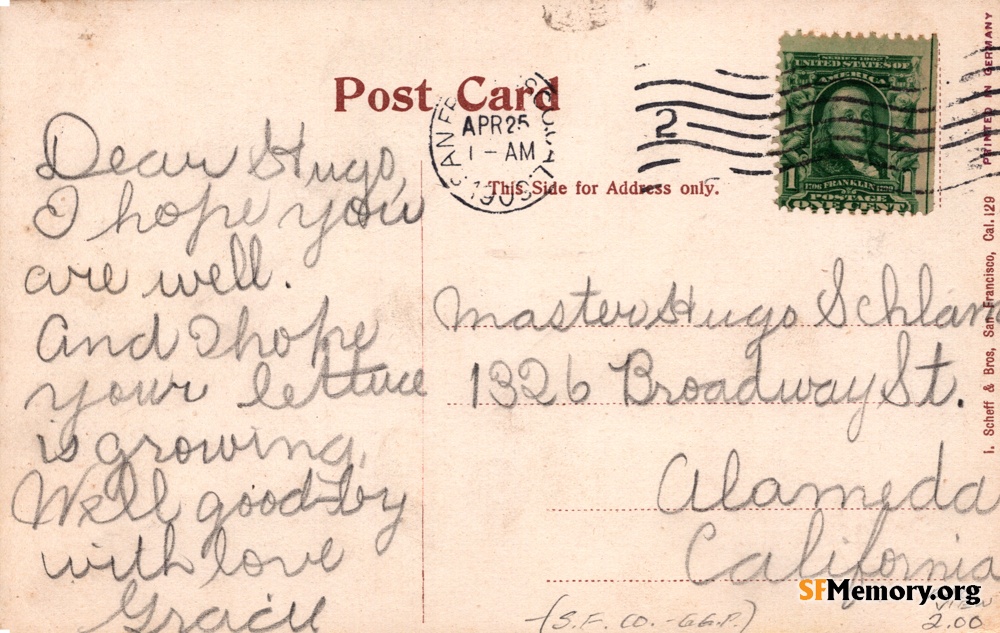 Post Card
This Side for Address only.
SAN FRANCISCO, CAL.
APR 25
1 - AM
2
SERIES 1902
UNITED STATES OF
AMERICA
1706 FRANKLIN 1790
1 1
POSTAGE
ONE CENT
PRINTED IN GERMANY
I. Scheff & Bros, San Francisco, Cal. 129
Dear Hugo,
I hope you
are well.
And I hope
your lettuce
is growing,
Well good-by
with love
Master Hugo
1326 Broadway St.
Alameda
California
(S.F. CO. - GGP)
VIEW
2.00
SFMemory.org